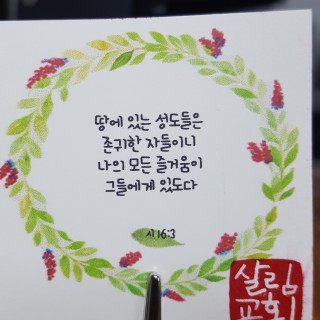 땅에 있는 성도들은
존귀한 자들이니
나의 모든 즐거움이
그들에게 있도다
시16:3
살림
교회